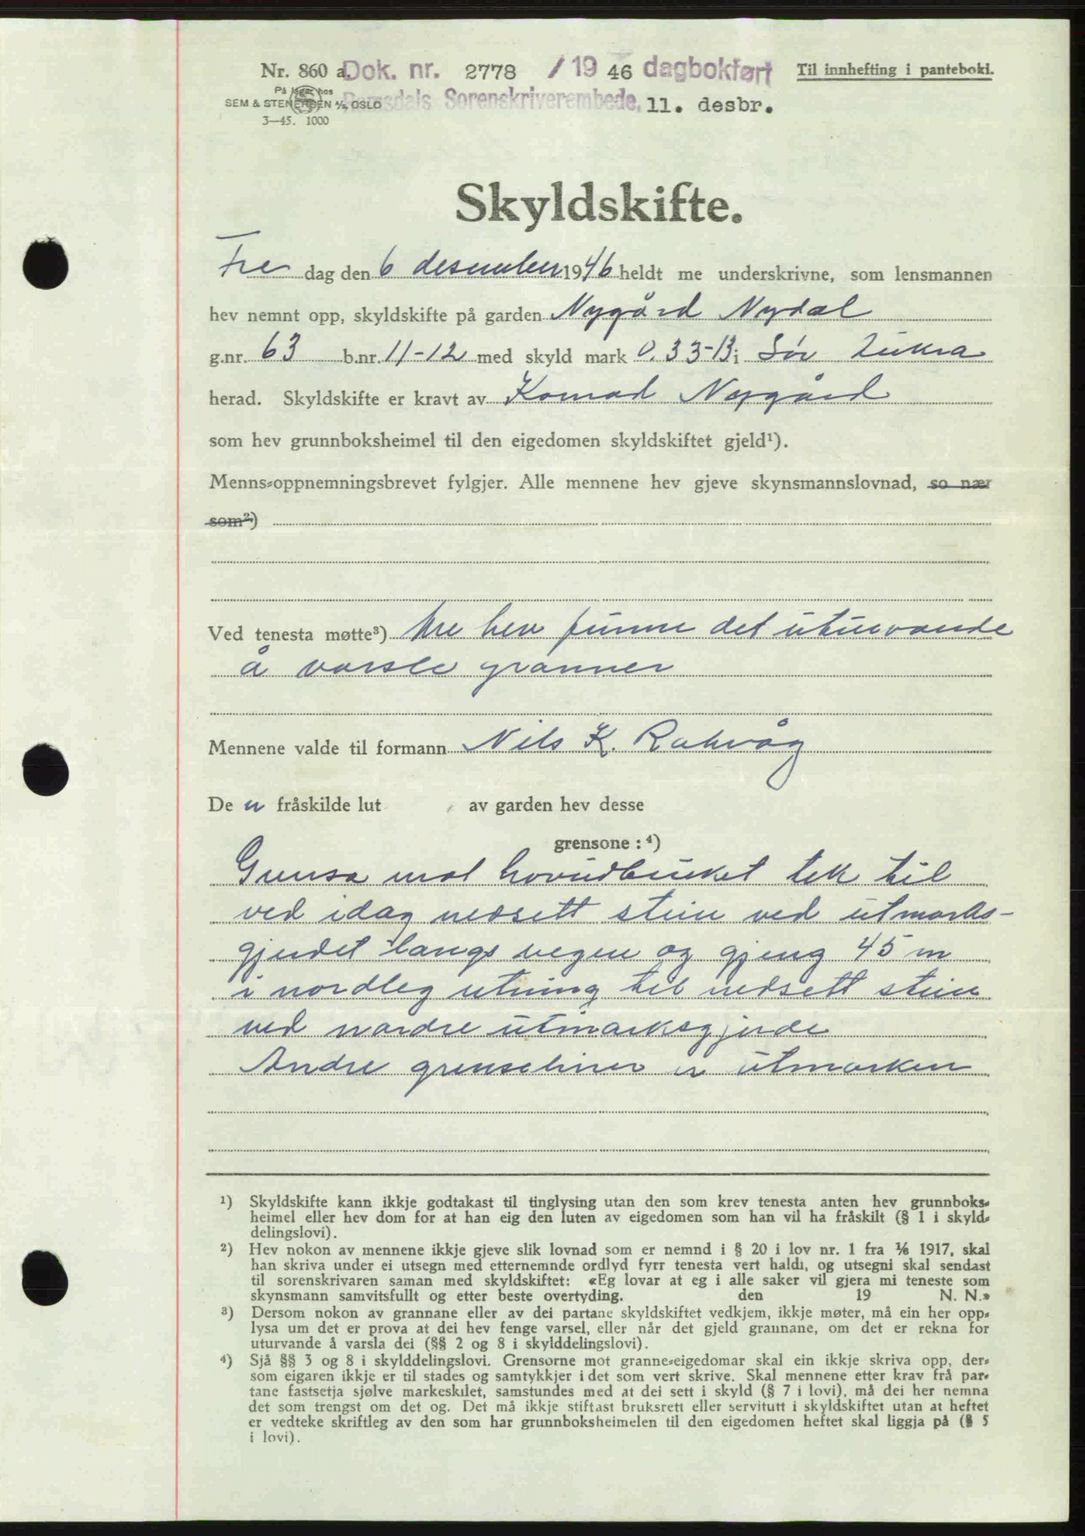 Nr. 860 a. Dok. nr. 2778 / 19 46 dagbokført Til innhefting i panteboki.
På lager hos
SEM & STENERSEN A/S, OSLO Romsdals Sorenskriverembede, 11. desbr.
3—45. 1000
Skyldskifte.
Fre dag den 6 desember 1946 heldt me underskrivne, som lensmannen
hev nemnt opp, skyldskifte på garden Nygård Nydal
g.nr. 63 b.nr. 11-12 med skyld mark 0.33-13 i Sør Aukra
herad. Skyldskifte er kravt av Konrad Nygård
som hev grunnboksheimel til den eigedomen skyldskiftet gjeld¹).
Menns-oppnemningsbrevet fylgjer. Alle mennene hev gjeve skynsmannslovnad, so nær
som²)
Ved tenesta møtte³) Me hev funne det uturvande
å varsle granner
Mennene valde til formann Nils K. Rakvåg
De n fråskilde lut av garden hev desse
grensone : ⁴)
Grensa mot hovudbruket tek til
ved idag nedsett stein ved utmarks-
gjerdet langs vegen og gjeng 45 m
i nordleg retning til nedsett stein
ved nordre utmarksgjerde
Andre grenseliner er utmarken
¹) Skyldskifte kann ikkje godtakast til tinglysing utan den som krev tenesta anten hev grunnboks-
heimel eller hev dom for at han eig den luten av eigedomen som han vil ha fråskilt (§ 1 i skyld-
delingslovi).
²) Hev nokon av mennene ikkje gjeve slik lovnad som er nemnd i § 20 i lov nr. 1 fra 1/6 1917, skal
han skriva under ei utsegn med etternemnde ordlyd fyrr tenesta vert haldi, og utsegni skal sendast
til sorenskrivaren saman med skyldskiftet: «Eg lovar at eg i alle saker vil gjera mi teneste som
skynsmann samvitsfullt og etter beste overtyding. den 19 N. N.»
³) Dersom nokon av grannane eller av dei partane skyldskiftet vedkjem, ikkje møter, må ein her opp-
lysa um det er prova at dei hev fenge varsel, eller når det gjeld grannane, om det er rekna for
uturvande å varsla dei (§§ 2 og 8 i skylddelingslovi).
⁴) Sjå §§ 3 og 8 i skylddelingslovi. Grensorne mot granne-eigedomar skal ein ikkje skriva opp, der-
som eigaren ikkje er til stades og samtykkjer i det som vert skrive. Skal mennene etter krav frå par-
tane fastsetja sjølve markeskilet, samstundes med at dei sett i skyld (§ 7 i lovi), må dei her nemna
det som trengst om det og. Det må ikkje stiftast bruksrett eller servitutt i skyldskiftet utan at heftet
er vedteke skriftleg av den som har grunnboksheimelen til den eigedomen heftet skal liggja på (§ 5
i lovi).